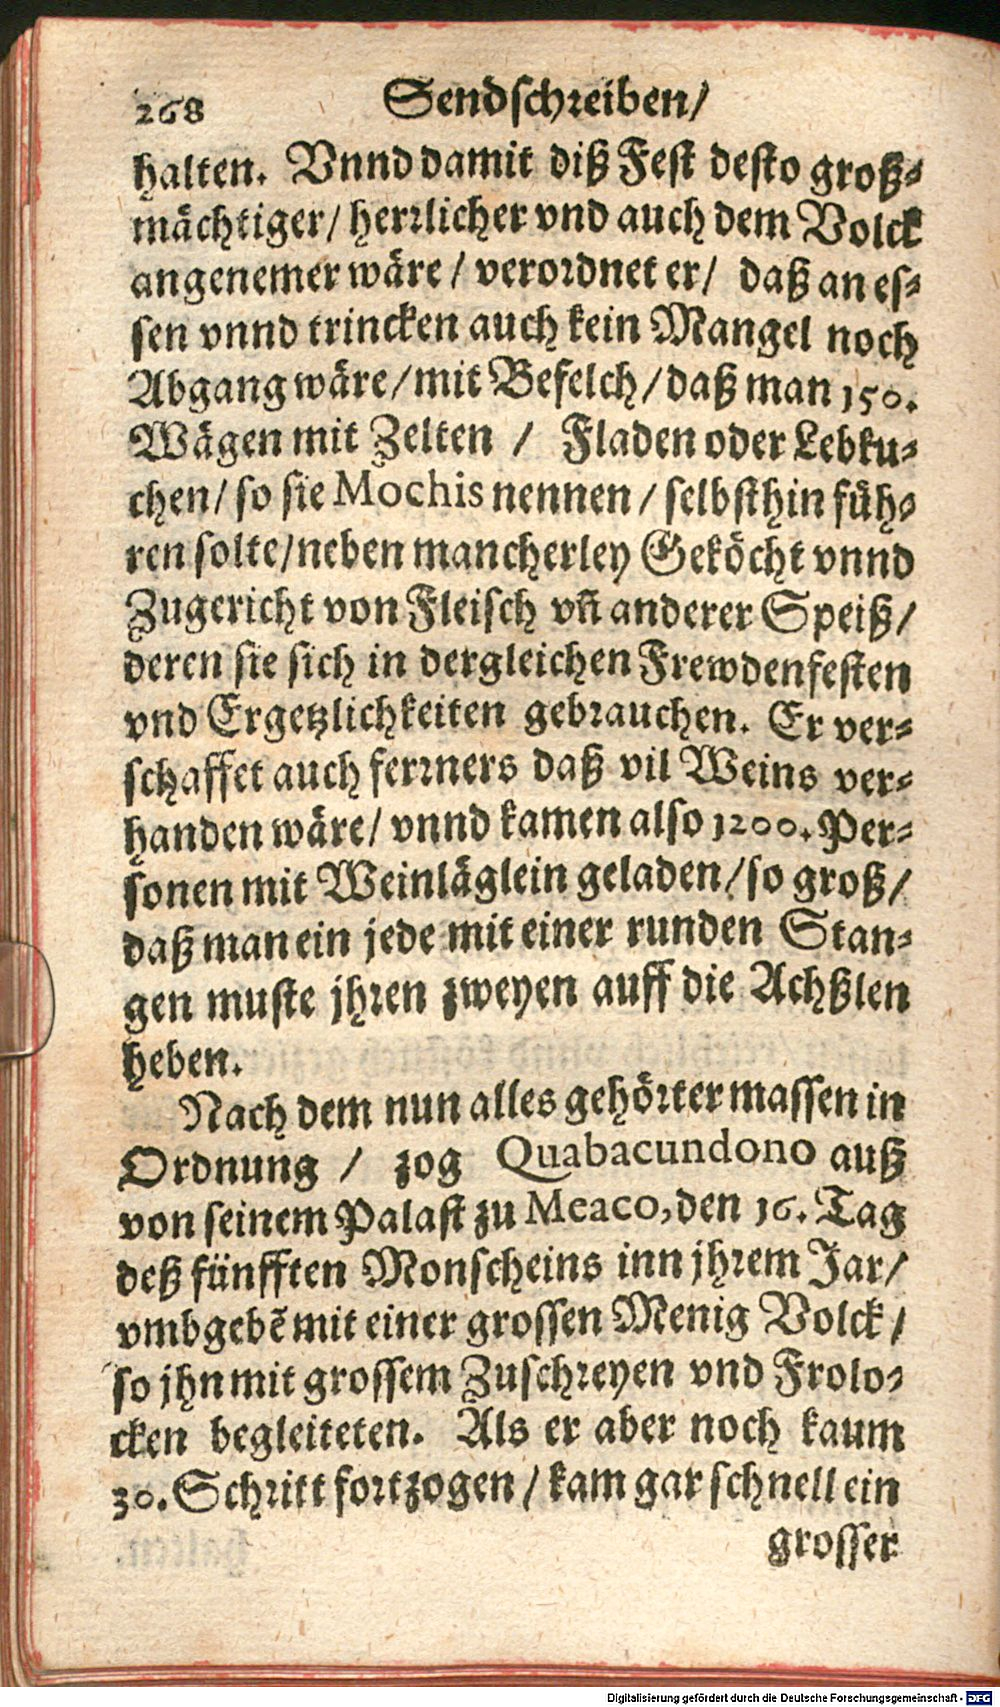 268 Sendschreiben/
halten. Vnnd damit diß Fest desto groß-
mächtiger/ herrlicher vnd auch dem Volck
angenemer wäre / verordnet er/ daß an es-
sen vnnd trincken auch kein Mangel noch
Abgang wäre/mit Befelch/daß man 150.
Wägen mit Zelten / Fladen oder Lebku-
chen/ so sie Mochis nennen / selbsthin füh-
ren solte/neben mancherley Geköcht vnnd
Zugericht von Fleisch vñ anderer Speiß/
deren sie sich in dergleichen Frewdenfesten
vnd Ergetzlichkeiten gebrauchen. Er ver-
schaffet auch ferrners daß vil Weins ver-
handen wäre/ vnnd kamen also 1200. Per-
sonen mit Weinläglein geladen/so groß/
daß man ein jede mit einer runden Stan-
gen muste jhren zweyen auff die Achßlen
heben.
Nach dem nun alles gehörter massen in
Ordnung / zog Quabacundono auß
von seinem Palast zu Meaco, den 16. Tag
deß fünfften Monscheins inn jhrem Jar/
vmbgebẽ mit einer grossen Menig Volck /
so jhn mit grossem Zuschreyen vnd Frolo-
cken begleiteten. Als er aber noch kaum
30. Schritt fortzogen / kam gar schnell ein
grosser
Digitalisierung gefördert durch die Deutsche Forschungsgemeinschaft - DFG